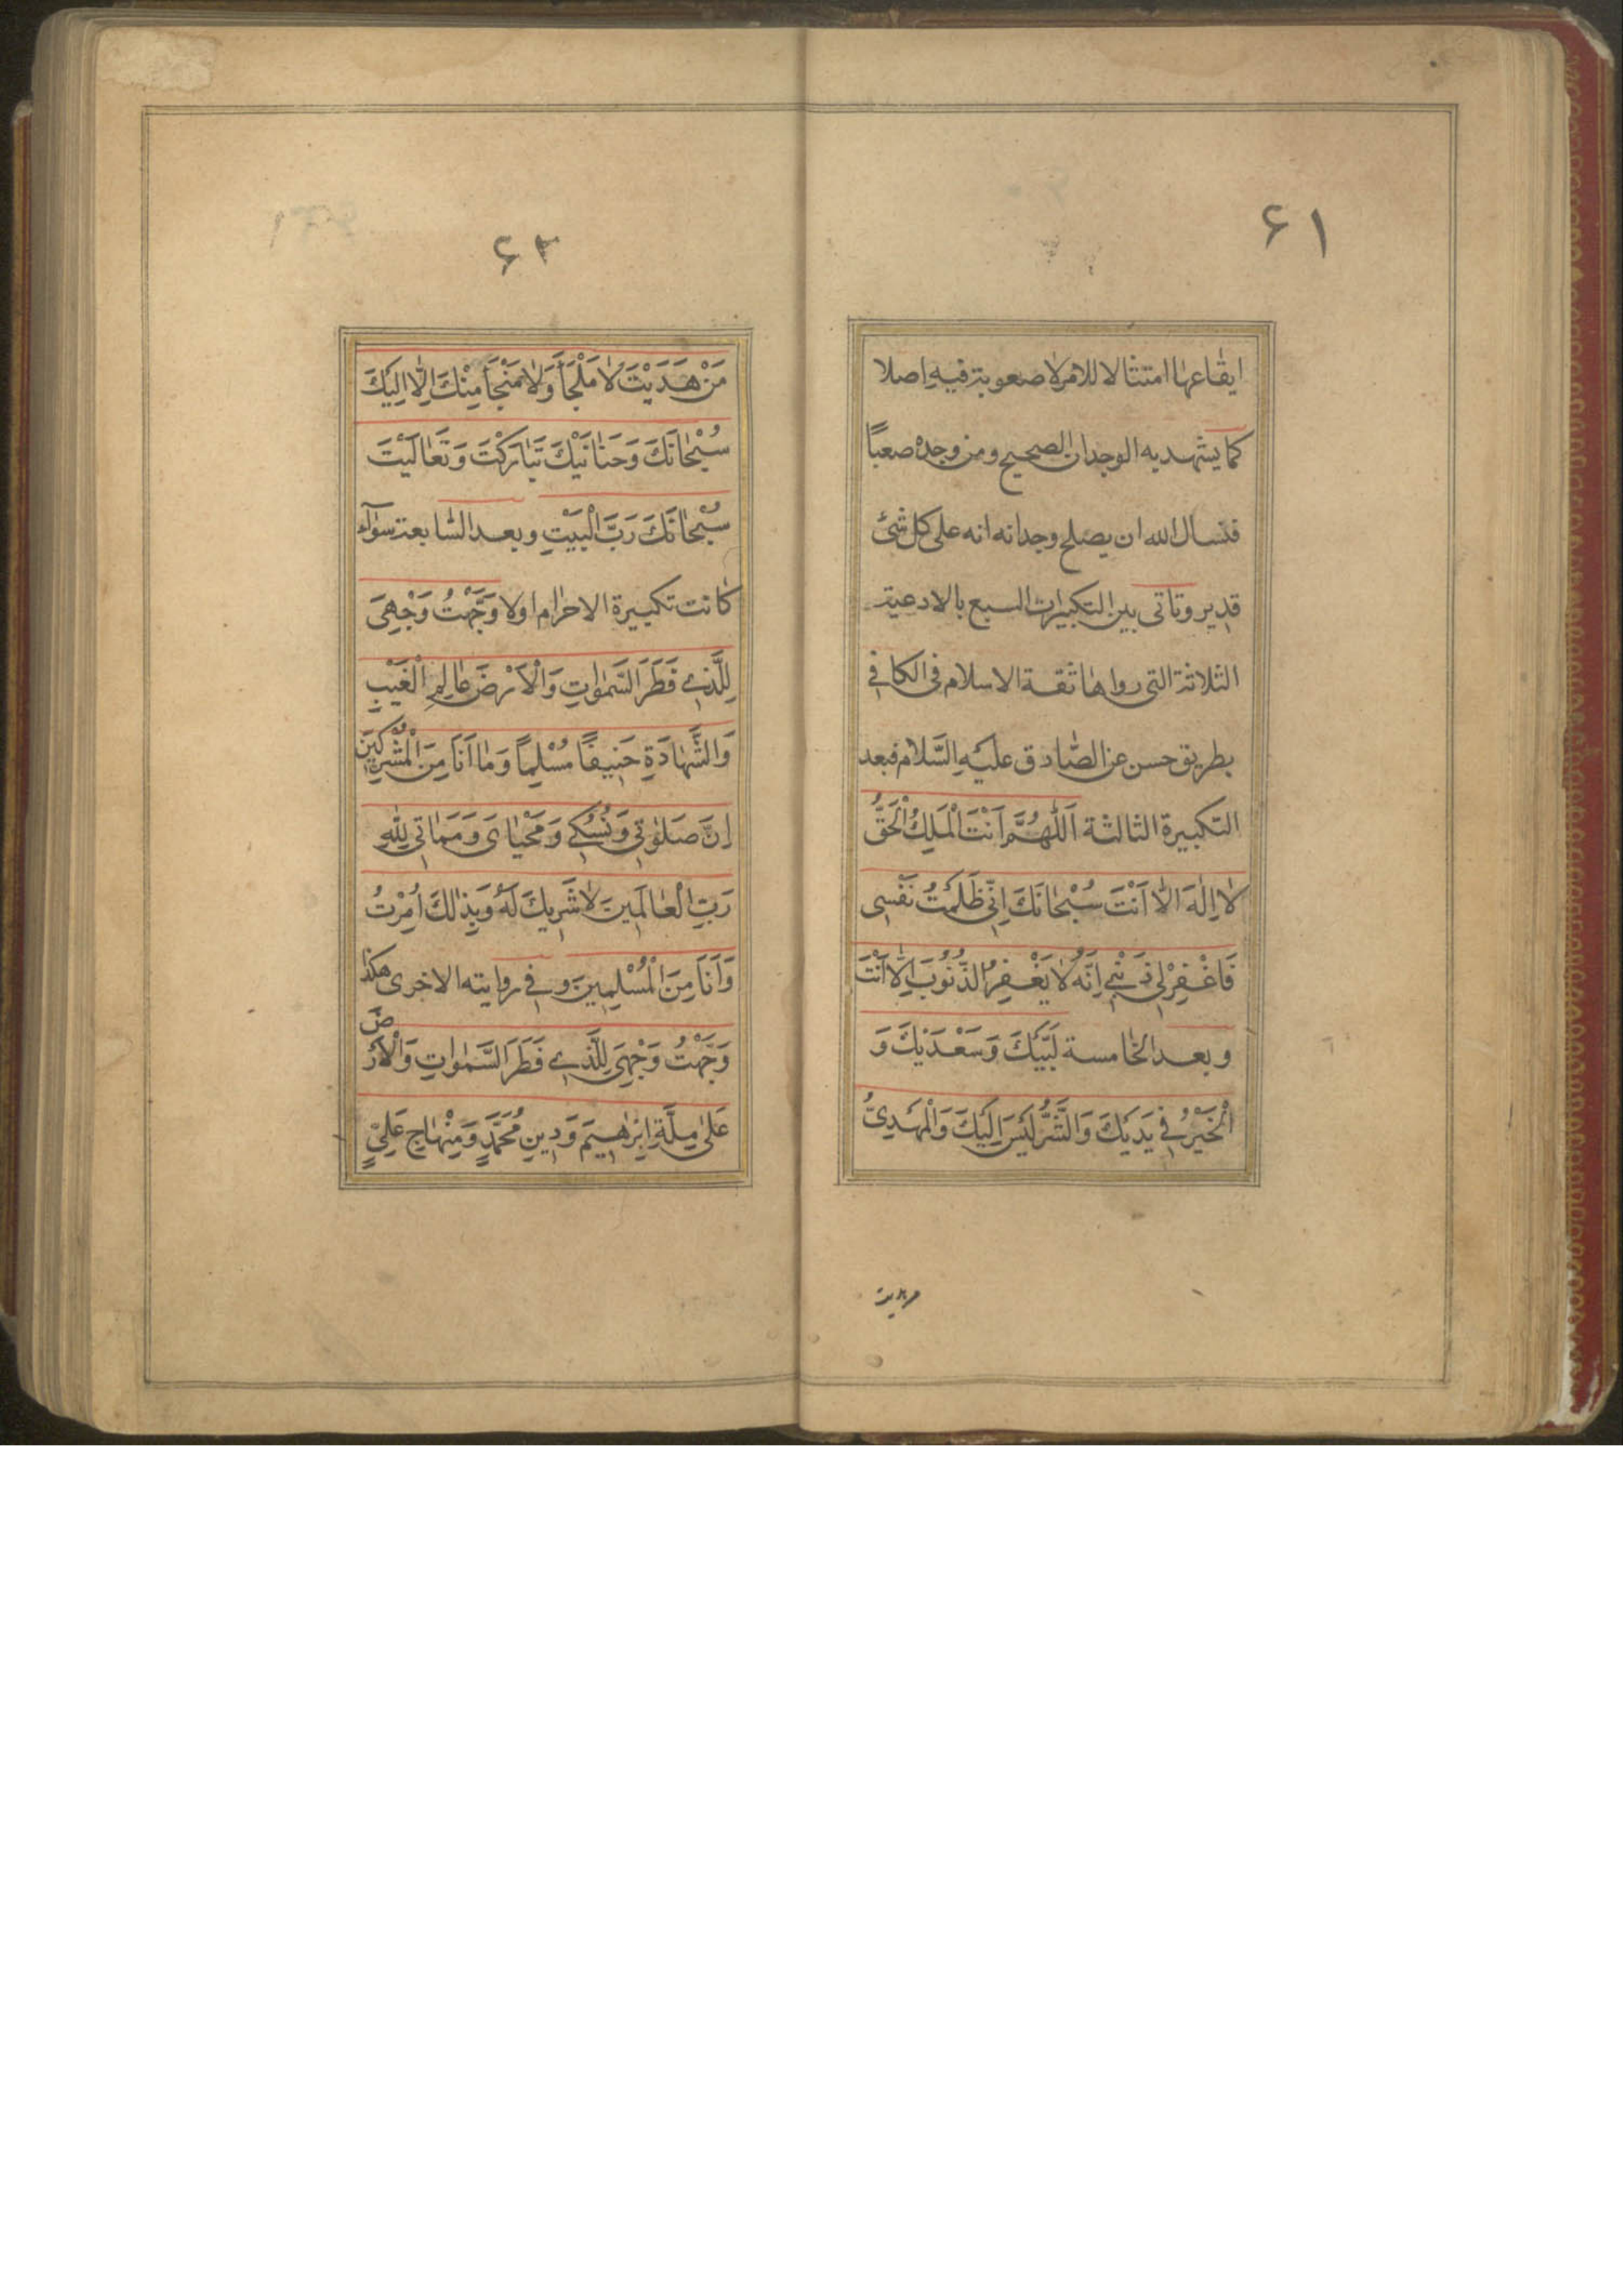 ۶۱
ايقاعها امتثالا للامر لا صعوبة فيه اصلا
كما يشهد به الوجدان الصحيح ومن وجده صعباً
فنسال الله ان يصلح وجدانه انه على كل شئ
قدير وتاتى بين التكبيرات السبع بالادعية
الثلاثة التى رواها ثقة الاسلام فى الكافي
بطريق حسن عن الصّادق عليهِ السّلام فبعد
التكبيرة الثالثة اَللّٰهُمَّ اَنْتَ الْمَلِكُ الْحَقُّ
لا اِلٰهَ اِلّا اَنْتَ سُبْحٰانَكَ اِنّي ظَلَمْتُ نَفْسِى
فَاغْفِرْلِي ذَنْبِي اِنَّهُ لا يَغْفِرُ الذُّنُوبَ اِلّا اَنْتَ
وبعد الخامسة لَبَّيْكَ وَسَعْدَيْكَ وَ
الْخَيْرُ فِي يَدَيْكَ وَالشَّرُّ لَيْسَ اِلَيْكَ وَالْمَهْدِيُّ
۶۲
مَنْ هَدَيْتَ لا مَلْجَأَ وَلا مَنْجَا مِنْكَ اِلّا اِلَيْكَ
سُبْحٰانَكَ وَحَنٰانَيْكَ تَبٰارَكْتَ وَتَعٰالَيْتَ
سُبْحٰانَكَ رَبَّ الْبَيْتِ وبعد السّابعة سوآء
كانت تكبيرة الاحرام اولا وَجَّهْتُ وَجْهِىَ
لِلَّذِي فَطَرَ السَّمٰوٰاتِ وَالْاَرْضَ عٰالِمِ الْغَيْبِ
وَالشَّهٰادَةِ حَنِيفًا مُسْلِماً وَمٰا اَنَا مِنَ الْمُشْرِكِينَ
اِنَّ صَلوٰتِي وَنُسُكِي وَمَحْيٰاىَ وَمَمٰاتِي لِلّٰهِ
رَبِّ الْعٰالَمِينَ لا شَرِيكَ لَهُ وَبِذٰلِكَ اُمِرْتُ
وَاَنَا مِنَ الْمُسْلِمِينَ وفي روايته الاخرى هكذا
وَجَّهْتُ وَجْهِىَ لِلَّذِي فَطَرَ السَّمٰوٰاتِ وَالْاَرْضَ
عَلىٰ مِلَّةِ اِبْرٰهِيمَ وَدِينِ مُحَمَّدٍ وَمِنْهٰاجِ عَلِيٍّ